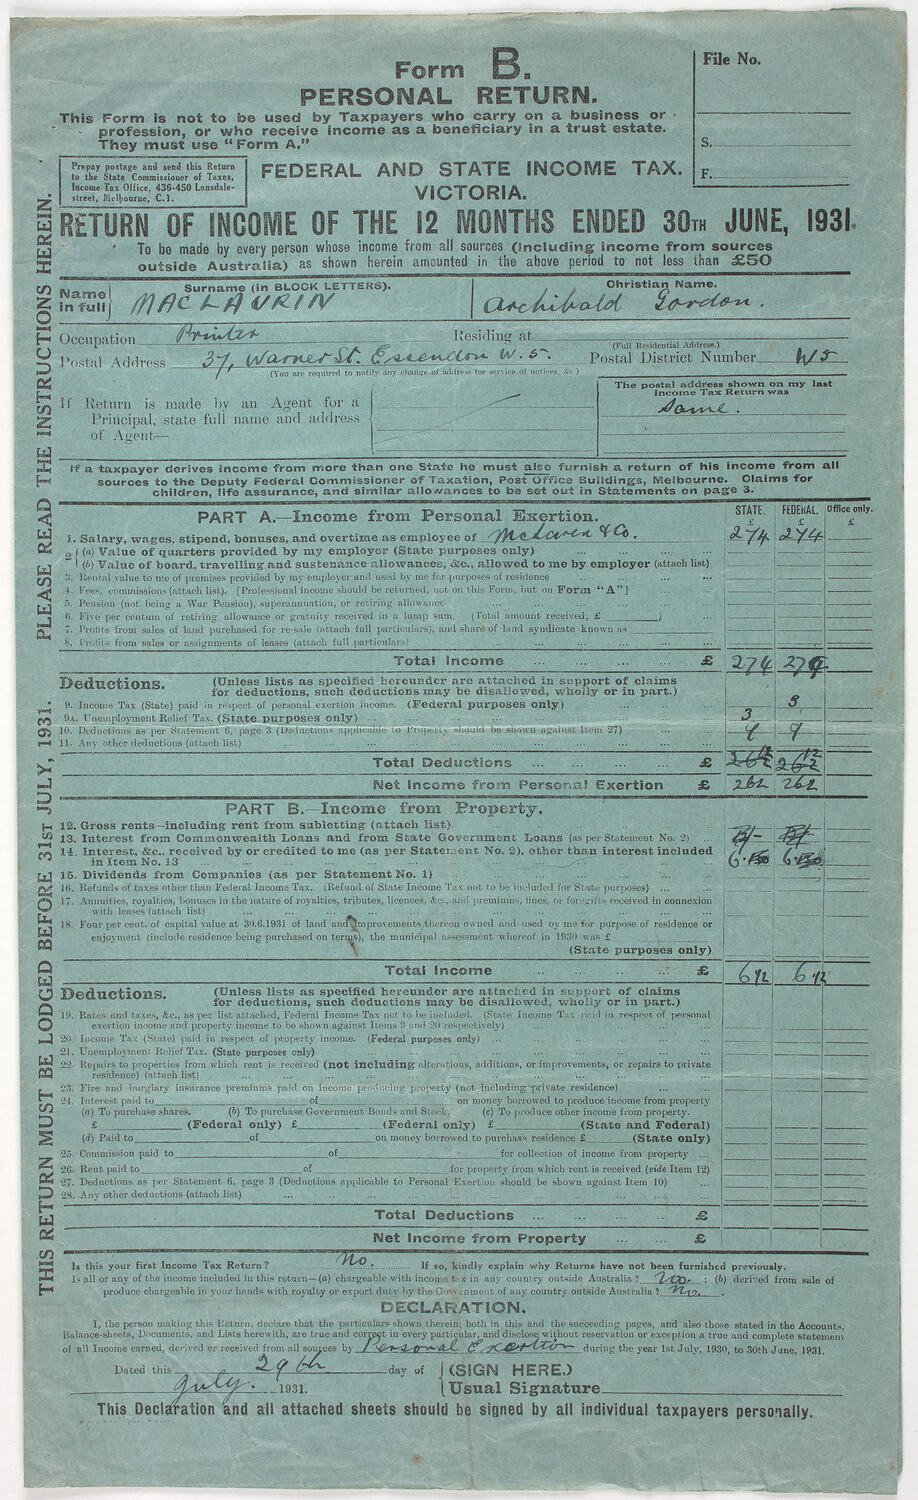 Form B.
PERSONAL RETURN.
This Form is not to be used by Taxpayers who carry on a business or
profession, or who receive income as a beneficiary in a trust estate.
They must use "Form A."
File No.
S.
F.
Prepay postage and send this Return
to the State Commissioner of Taxes,
Income Tax Office, 436-450 Lonsdale-
street, Melbourne, C.1.
FEDERAL AND STATE INCOME TAX.
VICTORIA.
RETURN OF INCOME OF THE 12 MONTHS ENDED 30TH JUNE, 1931.
To be made by every person whose income from all sources (including income from sources
outside Australia) as shown herein amounted in the above period to not less than £50
THIS RETURN MUST BE LODGED BEFORE 31ST JULY, 1931. PLEASE READ THE INSTRUCTIONS HEREIN.
Name in full
Surname (in BLOCK LETTERS).
MACLAURIN
Christian Name.
Archibald Gordon.
Occupation Printer Residing at
(Full Residential Address.)
Postal Address 37, Warner St. Essendon W.5. Postal District Number W5
(You are required to notify any change of address for service of notices, &c.)
If Return is made by an Agent for a
Principal, state full name and address
of Agent—
The postal address shown on my last
Income Tax Return was
Same.
If a taxpayer derives income from more than one State he must also furnish a return of his income from all
sources to the Deputy Federal Commissioner of Taxation, Post Office Buildings, Melbourne. Claims for
children, life assurance, and similar allowances to be set out in Statements on page 3.
PART A.—Income from Personal Exertion. STATE. FEDERAL. Office only.
£ £ £
1. Salary, wages, stipend, bonuses, and overtime as employee of McLaren & Co. 274 274
2 (a) Value of quarters provided by my employer (State purposes only)
(b) Value of board, travelling and sustenance allowances, &c., allowed to me by employer (attach list)
3. Rental value to me of premises provided by my employer and used by me for purposes of residence
4. Fees, commissions (attach list). [Professional income should be returned, not on this Form, but on Form "A"]
5. Pension (not being a War Pension), superannuation, or retiring allowance
6. Five per centum of retiring allowance or gratuity received in a lump sum. (Total amount received, £ )
7. Profits from sales of land purchased for re-sale (attach full particulars), and share of land syndicate known as
8. Profits from sales or assignments of leases (attach full particulars)
Total Income £ 274 274
Deductions. (Unless lists as specified hereunder are attached in support of claims
for deductions, such deductions may be disallowed, wholly or in part.)
9. Income Tax (State) paid in respect of personal exertion income. (Federal purposes only) 3
9A. Unemployment Relief Tax. (State purposes only) 3
10. Deductions as per Statement 6, page 3 (Deductions applicable to Property should be shown against Item 27) 9 9
11. Any other deductions (attach list)
Total Deductions £ 12 12
Net Income from Personal Exertion £ 262 262
PART B.—Income from Property.
12. Gross rents—including rent from subletting (attach list)
13. Interest from Commonwealth Loans and from State Government Loans (as per Statement No. 2)
14. Interest, &c., received by or credited to me (as per Statement No. 2), other than interest included
in Item No. 13 6 6
15. Dividends from Companies (as per Statement No. 1)
16. Refunds of taxes other than Federal Income Tax. (Refund of State Income Tax not to be included for State purposes)
17. Annuities, royalties, bonuses in the nature of royalties, tributes, licences, &c., and premiums, fines, or foregifts received in connexion
with leases (attach list)
18. Four per cent. of capital value at 30.6.1931 of land and improvements thereon owned and used by me for purpose of residence or
enjoyment (include residence being purchased on terms), the municipal assessment whereof in 1930 was £
(State purposes only)
Total Income £ 6 1/2 6 1/2
Deductions. (Unless lists as specified hereunder are attached in support of claims
for deductions, such deductions may be disallowed, wholly or in part.)
19. Rates and taxes, &c., as per list attached, Federal Income Tax not to be included. (State Income Tax paid in respect of personal
exertion income and property income to be shown against Items 9 and 20 respectively)
20. Income Tax (State) paid in respect of property income. (Federal purposes only)
21. Unemployment Relief Tax. (State purposes only)
22. Repairs to properties from which rent is received (not including alterations, additions, or improvements, or repairs to private
residence) (attach list)
23. Fire and burglary insurance premiums paid on income producing property (not including private residence)
24. Interest paid to of on money borrowed to produce income from property
(a) To purchase shares. (b) To purchase Government Bonds and Stock. (c) To produce other income from property.
£ (Federal only) £ (Federal only) £ (State and Federal)
(d) Paid to of on money borrowed to purchase residence £ (State only)
25. Commission paid to of for collection of income from property
26. Rent paid to of for property from which rent is received (vide Item 12)
27. Deductions as per Statement 6, page 3 (Deductions applicable to Personal Exertion should be shown against Item 10)
28. Any other deductions (attach list)
Total Deductions £
Net Income from Property £
Is this your first Income Tax Return? No. If so, kindly explain why Returns have not been furnished previously.
Is all or any of the income included in this return—(a) chargeable with income tax in any country outside Australia? No. ; (b) derived from sale of
produce chargeable in your hands with royalty or export duty by the Government of any country outside Australia? No.
DECLARATION.
I, the person making this Return, declare that the particulars shown therein, both in this and the succeeding pages, and also those stated in the Accounts,
Balance-sheets, Documents, and Lists herewith, are true and correct in every particular, and disclose without reservation or exception a true and complete statement
of all Income earned, derived or received from all sources by Personal Exertion during the year 1st July, 1930, to 30th June, 1931.
Dated this 29th day of (SIGN HERE.)
July. 1931. Usual Signature
This Declaration and all attached sheets should be signed by all individual taxpayers personally.